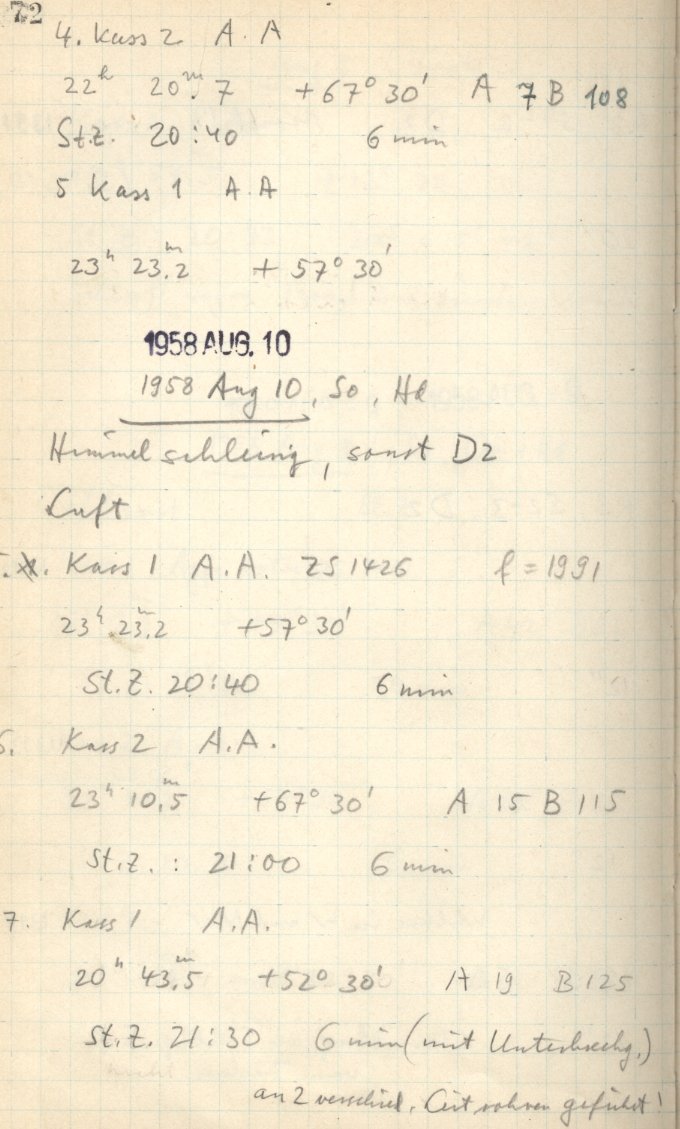 72
4. Kass 2 A. A
22h 20m. 7 +67° 30' A 7 B 108
St.z. 20:40 6 min
5 Kass 1 A. A
23h 23m.2 + 57° 30'
1958 AUG. 10
1958 Aug 10, So, Hd
Himmel schleirig, sonst D2
Luft
Kass 1 A.A. ZS 1426 f = 1991
23h 23m.2 +57° 30'
St. Z. 20:40 6 min
6. Kass 2 A.A.
23h 10m.5 +67° 30' A 15 B 115
St.Z. : 21:00 6 min
7. Kass 1 A.A.
20h 43m.5 +52° 30' A 19 B 125
St.Z. 21:30 6 min (mit Unterbrechg.)
an 2 verschied. geführt!